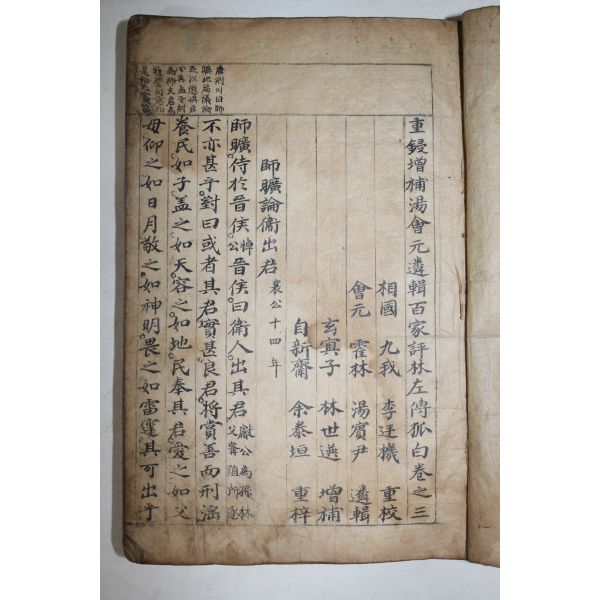 重鋟增補湯會元遴輯百家評林左傳狐白卷之三
相國 九我 李廷機 重校
會元 霍林 湯賓尹 遴輯
玄寅子 林世選 增補
自新齋 余泰垣 重梓
師曠論衞出君 襄公十四年
師曠侍於晉侯 悼公 晉侯曰衛人出其君 獻公為孫林父甯殖所逐
不亦甚乎對曰或者其君實甚良君將賞善而刑淫
養民如子盖之如天容之如地民奉其君愛之如父
母仰之如日月敬之如神明畏之如雷霆其可出乎
唐荊川曰師
曠此篇議論